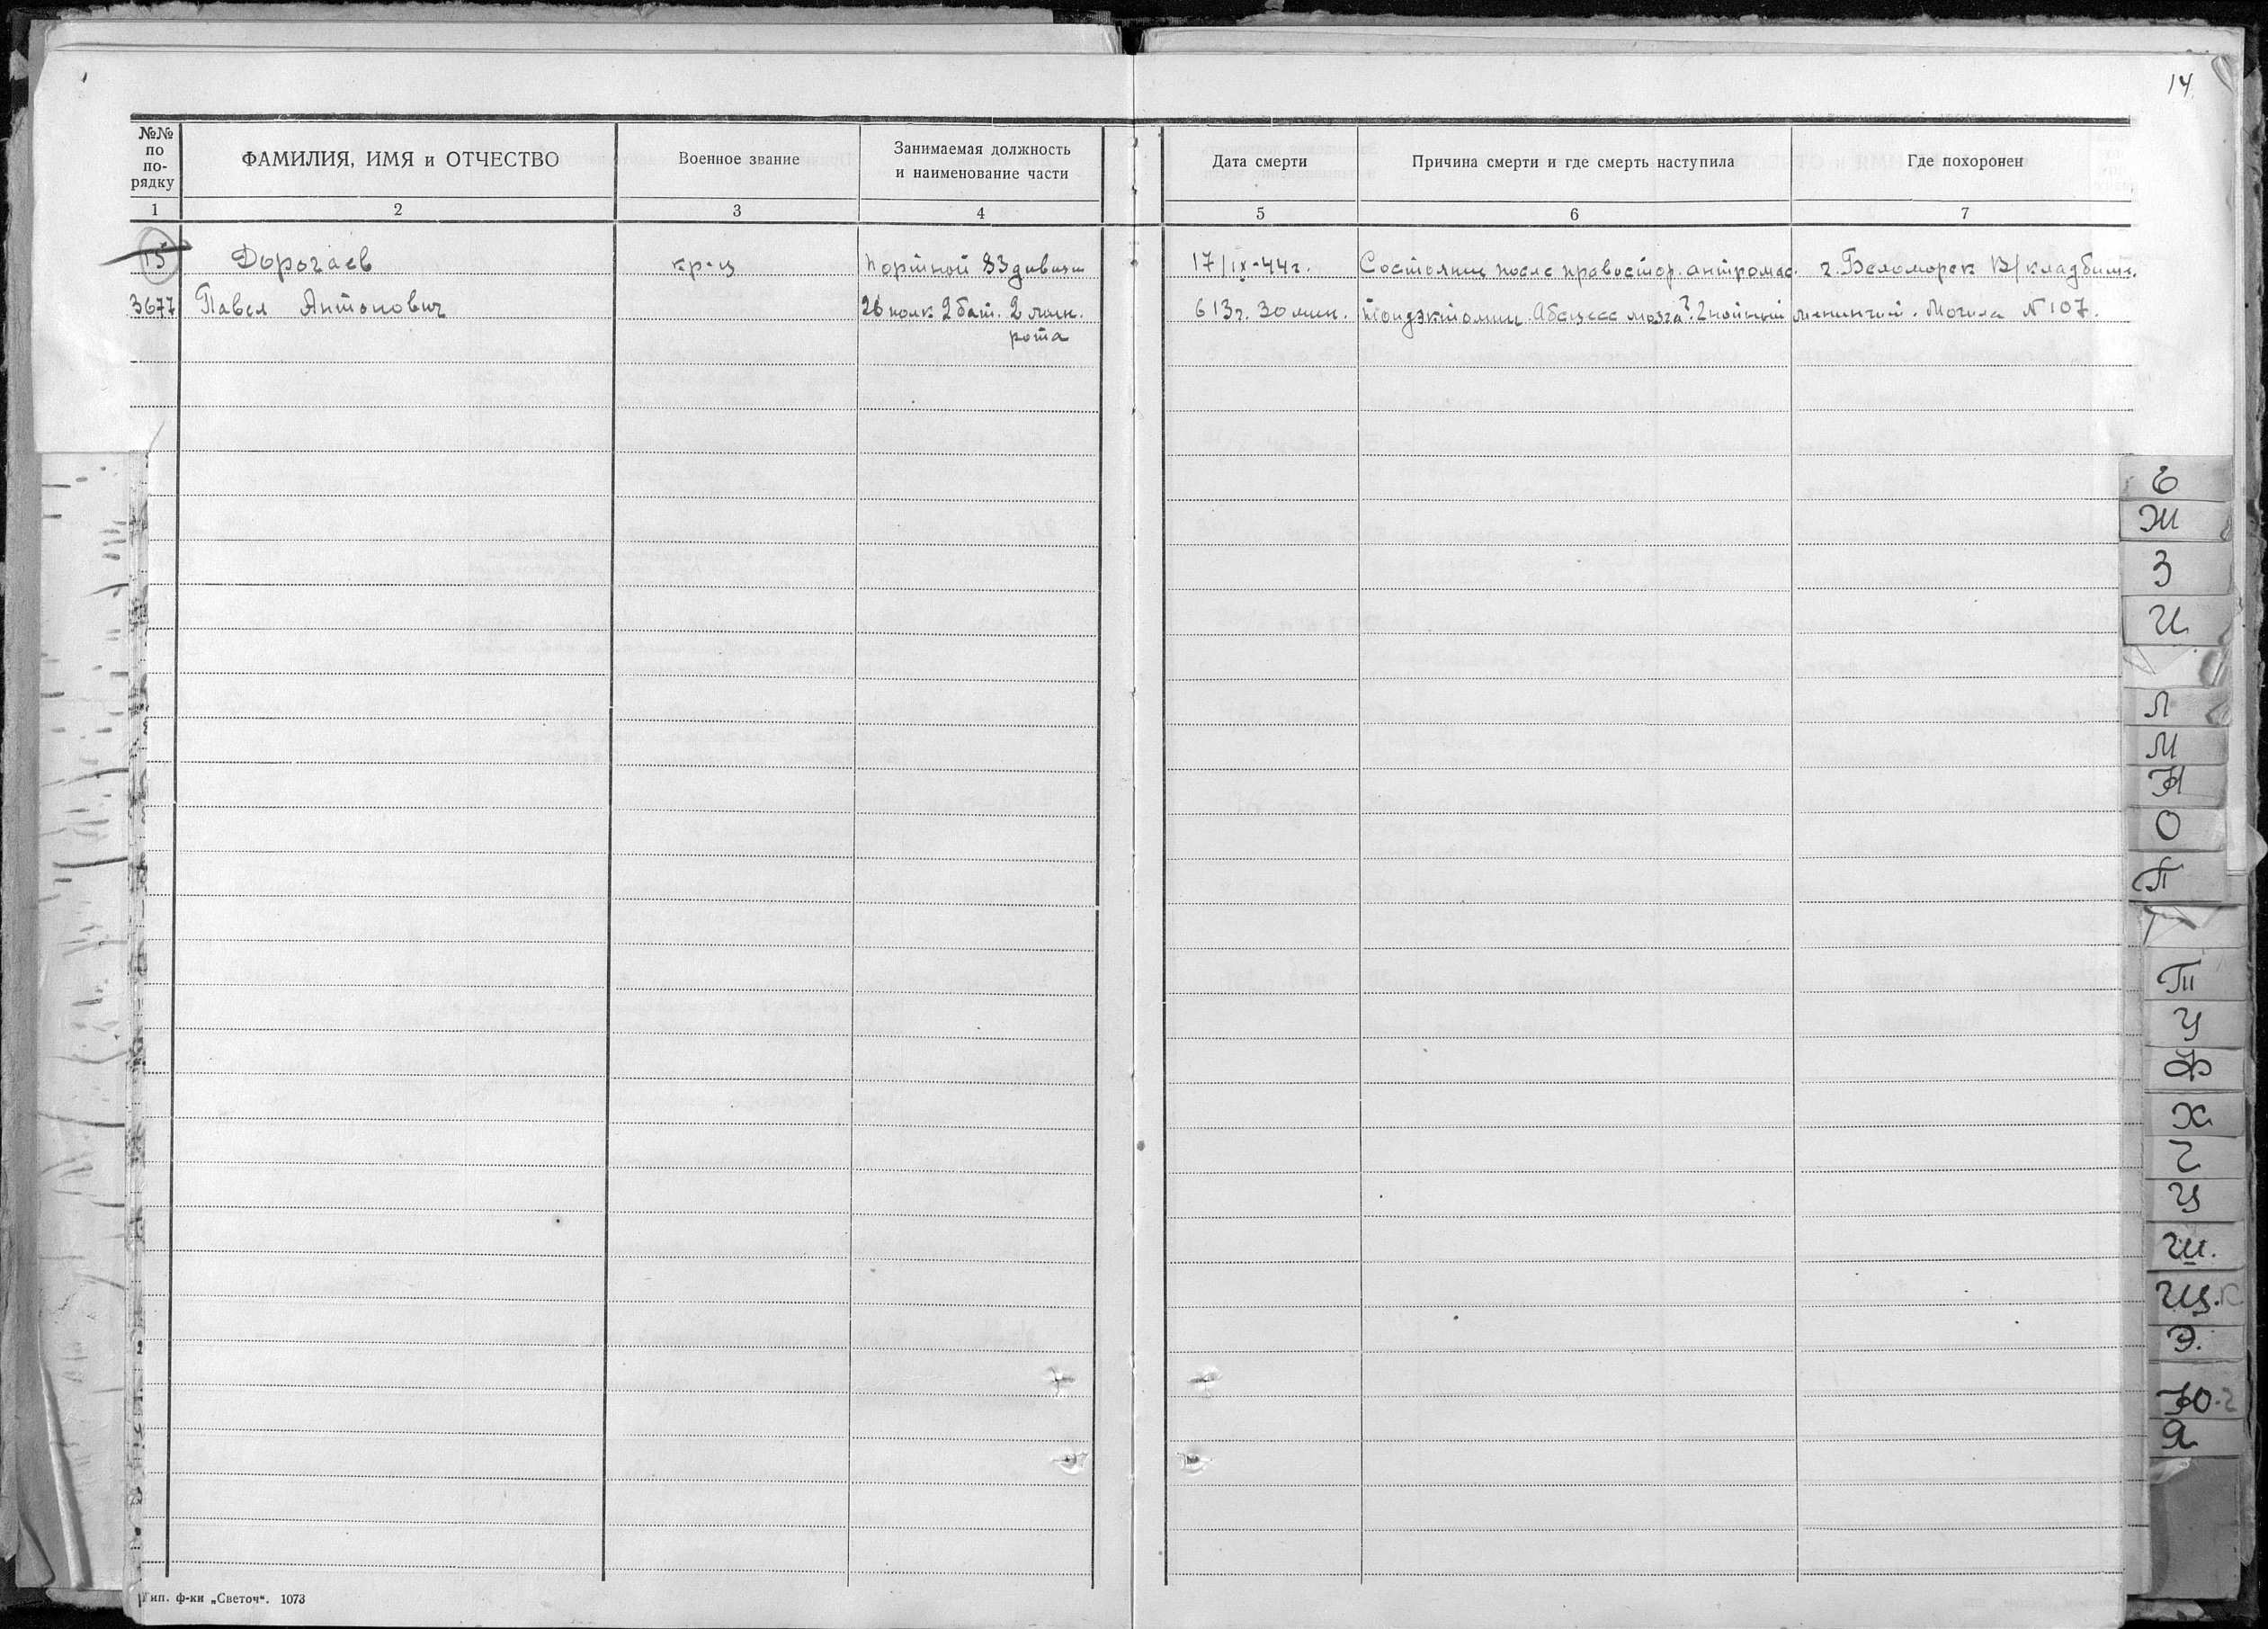 14
№№ по по-рядку
ФАМИЛИЯ, ИМЯ и ОТЧЕСТВО
Военное звание
Занимаемая должность
и наименование части
Дата смерти
Причина смерти и где смерть наступила
Где похоронен
1 2 3 4 5 6 7
15 Дорогаев кр-ц Портной 83 дивизи 17/IX-44г. Состояние после правостор. антромас. г. Беломорск В/кладбище.
3677 Павел Антонович 26 полк 2 бат. 2 рота в 13ч. 30 мин. тоидэктомии. Абсцесс мозга? Гнойный менингит. Могила N 107.
Е
Ж
З
И
Л
М
Н
О
П
Т
У
Ф
Х
Ц
Ш.
Щ.
Э.
Ю
Я
Тип. ф-ки „Светоч“. 1073